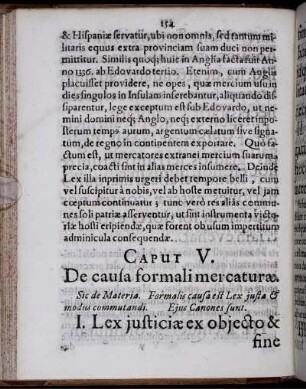 154
& Hispaniæ servatur, ubi non omnis, sed tantum mi-
litaris equus extra provinciam suam duci non per-
mittitur. Similis quoq; huic in Anglia facta fuit An-
no 1336. ab Edovardo tertio. Etenim, cum Angliæ
placuisset providere, ne opes, quæ mercium usu in
dies singulos in Insulam inferebantur, aliquando dis-
siparentur, lege exceptum est sub Edovardo, ut ne-
mini domini neq; Anglo, neq; externo liceret in po-
sterum tempus aurum, argentum cælatum sive signa-
tum, de regno in continentem exportare. Quo fa-
ctum est, ut mercatores extranei mercium suarum
precia, coacti sint in alias merces insumere. Deinde
Lex illa inprimis urgeri debet tempore belli, cum
vel suscipitur à nobis, vel ab hoste metuitur, vel jam
cœptum continuatur; tunc verò res alias commu-
nes soli patriæ asserventur, ut sint instrumenta victo-
riæ hosti eripiendæ, quæ forent ob usum impertitum
adminicula consequendæ.
CAPUT V.
De causa formali mercaturæ.
Sic de Materia. Formalis causa est Lex justa &
modus commutandi. Ejus Canones sunt.
I. Lex justiciæ ex objecto &
fine